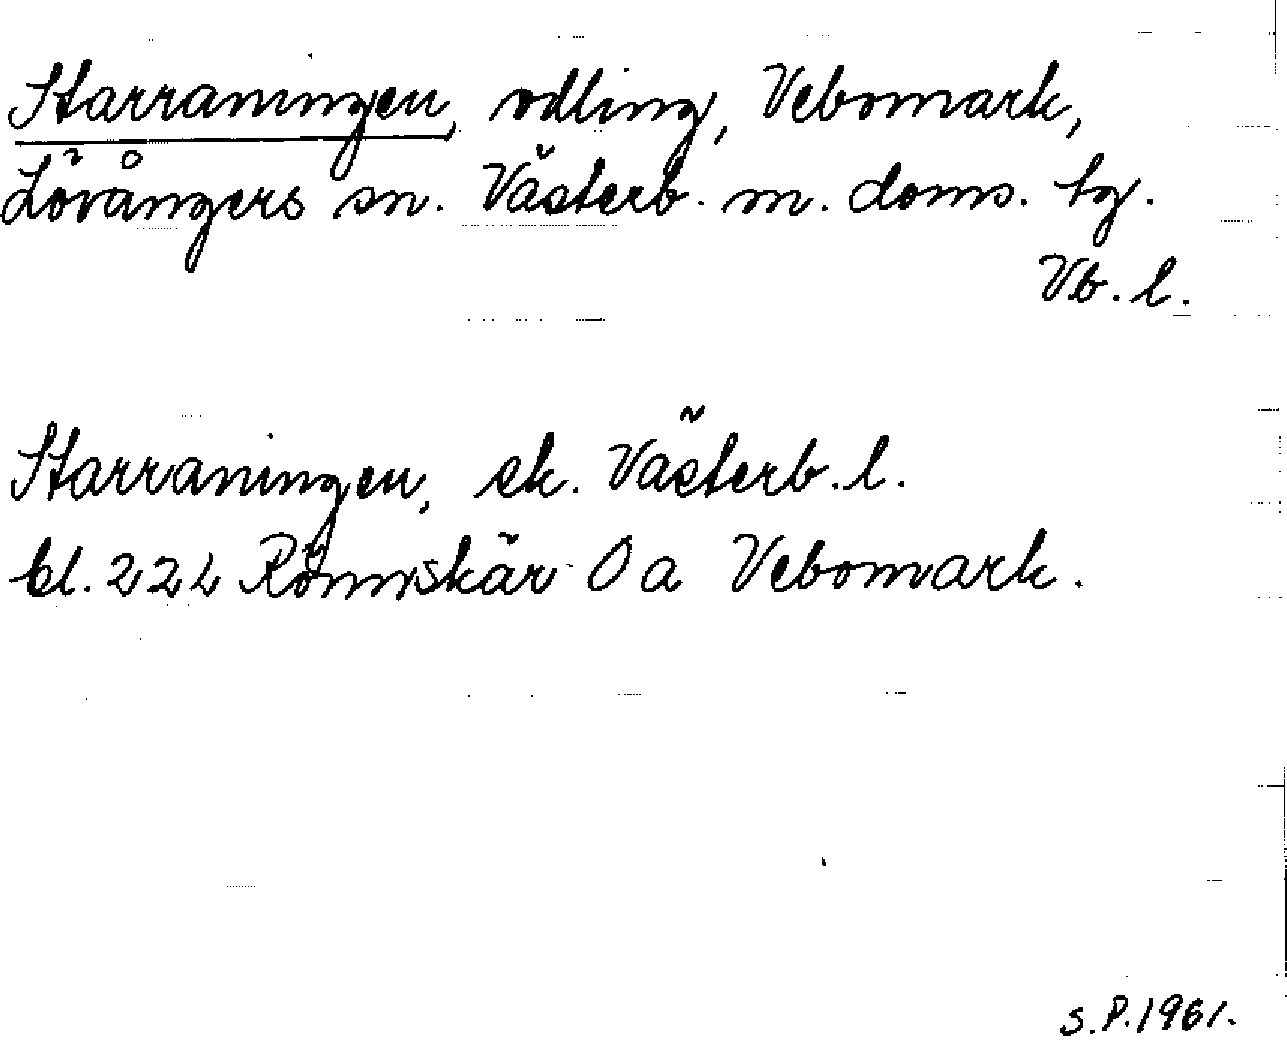 Starraningen, odling, Vebomark,
Lövångers sn. Västerb. m. doms. tg.
Vb. l.
Starraningen, ek. Västerb. l.
bl. 222 Rönnskär O a Vebomark.
S.P. 1961.